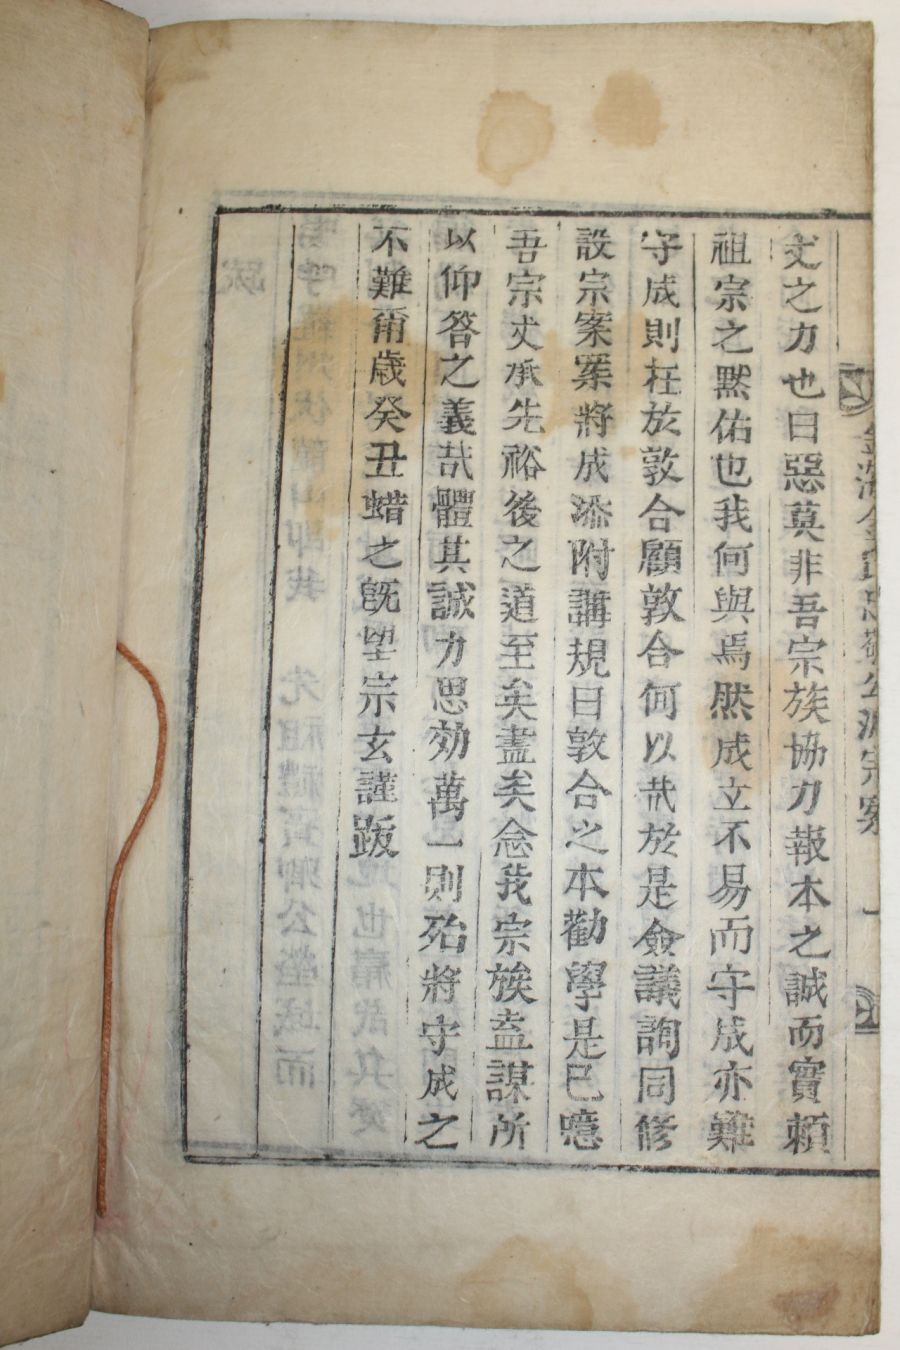 丈之力也曰惡莫非吾宗族協力報本之誠而實賴
祖宗之黙佑也我何與焉然成立不易而守成亦難
守成則在於敦合顧敦合何以哉於是僉議詢同修
設宗案案將成添附講規曰敦合之本勸學是已噫
吾宗丈承先裕後之道至矣盡矣念我宗族盍謀所
以仰答之義哉體其誠力思効萬一則殆將守成之
不難爾歲癸丑蜡之旣望宗玄謹跋